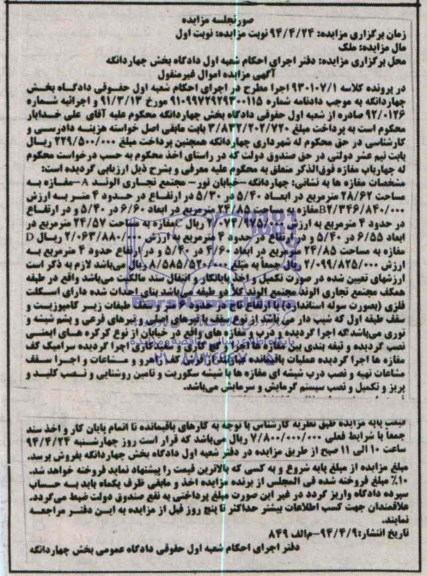 صورتجلسه مزایده
زمان برگزاری مزایده: ۹۴/۴/۲۴ نوبت مزایده: نوبت اول
مال مزایده: ملک
محل برگزاری مزایده: دفتر اجرای احکام شعبه اول دادگاه بخش چهاردانگه
آگهی مزایده اموال غیرمنقول
در پرونده کلاسه ۹۳۰۱۰۷/۱ اجرا مطرح در اجرای شعبه اول حقوقی دادگاه بخش
چهاردانگه به موجب دادنامه شماره ۹۱۰۹۹۷۲۹۲۹۳۰۰۱۱۵ مورخ ۹۱/۳/۱۳ و اجرائیه شماره
۹۲/۰۱۲۶ صادره از شعبه اول حقوقی دادگاه بخش چهاردانگه محکوم علیه آقای علی خدایار
محکوم است به پرداخت مبلغ ۳/۸۳۲/۲۰۲/۷۲۰ بابت مابقی اصل خواسته هزینه دادرسی و
کارشناسی در حق محکوم له شهرداری چهاردانگه همچنین پرداخت مبلغ ۲۲۹/۵۰۰/۰۰۰ ریال
بابت نیم عشر دولتی در حق صندوق دولت که در راستای اخذ محکوم به حسب درخواست محکوم
له چهارباب مغازه فوق الذکر متعلق به محکوم علیه معرفی و بشرح ذیل ارزیابی گردیده است:
مشخصات مغازه ها به نشانی: چهاردانگه-خیابان نور- مجتمع تجاری الوند A-مغازه به
مساحت ۲۸/۶۲ مترمربع در ابعاد ۵/۴۰ در ۵/۳۰ در ارتفاع در حدود ۴ متر به ارزش
۲/۳۴۶/۸۴۰/۰۰۰ Bمغازه به مساحت ۲۴/۸۵ مترمربع در ابعاد ۶/۶۰ در ۵/۴۰ و در ارتفاع
در حدود ۴ مترمربع به ارزش ۲/۰۷۳/۹۲۵/۰۰۰ ریال مغازه به مساحت ۲۴/۵۷ مترمربع در
ابعاد ۶/۵۵ در ۵/۴۰ و در ارتفاع در حدود ۴ مترمربع به ارزش ۲/۰۶۳/۸۸۰/ ریال D
مغازه به مساحت ۲۴/۸۵ مترمربع در ابعاد ۴/۶ در ۵/۴۰ و در ارتفاع حدود ۴ مترمربع به
ارزش ۲/۰۹۹/۸۲۵/۰۰۰ ریال جمعا به مبلغ ۸/۵۸۵/۵۲۰/۰۰۰ ریال می باشد لازم به ذکر است
ارزشهای تعیین شده در صورت تکمیل و اخذ پایانکار و انتقال سند مالکیت می باشد واقع در طبقه
همکف مجتمع تجاری الوند مجتمع الوند طبقه می باشد بنای احداث شده دارای اسکلت
فلزی (بصورت سوله استاندارد) با ارتفاع سقف طبقات زیر کامپوزیت و
سقف طبقه اول که شیب دار می باشد از نوع سقف با تیرهای اصلی و تیرهای فرعی و پشم شیشه و
توری می باشد که اجرا گردیده و درب مغازه های واقع در خیابان از نوع کرکره های ایمنی
نصب گردیده و تیغه بندی بین مغازه ها اجرا و گچ کاری و سفیدکاری اجرا گردیده سرامیک کف
مغازه ها اجرا گردیده عملیات باقیمانده و مشاعات و اجرا سقف
مشاعات تهیه و نصب درب شیشه ای مغازه ها با شیشه سکوریت و تامین روشنایی و نصب کلید و
پریز و تکمیل و نصب سیستم گرمایش و سرمایش می باشد.
قیمت پایه مزایده طبق نظریه کارشناس با توجه به کارهای باقیمانده تا اتمام پایان کار و اخذ سند
جمعاً با شرایط فعلی ۷/۸۰۰/۰۰۰/۰۰۰ ریال می باشد که قرار است روز چهارشنبه ۹۴/۴/۲۴
ساعت ۱۰ الی ۱۱ صبح از طریق مزایده در دفتر شعبه اول دادگاه بخش چهاردانگه بفروش برسد.
مبلغ مزایده از مبلغ پایه شروع و به کسی که بالاترین قیمت را پیشنهاد نماید فروخته خواهد شد.
۱۰٪ مبلغ فروخته شده فی المجلس از برنده مزایده اخذ و مابقی ظرف یکماه باید به حساب
سپرده دادگاه واریز گردد در غیر این صورت مبلغ پرداختی به نفع صندوق دولت ضبط می گردد.
علاقمندان جهت کسب اطلاعات بیشتر حداکثر تا پنج روز قبل از مزایده به این دفتر مراجعه
نمایند.
تاریخ انتشار: ۹۴/۴/۹-م الف ۸۴۹
دفتر اجرای احکام شعبه اول حقوقی دادگاه عمومی بخش چهاردانگه